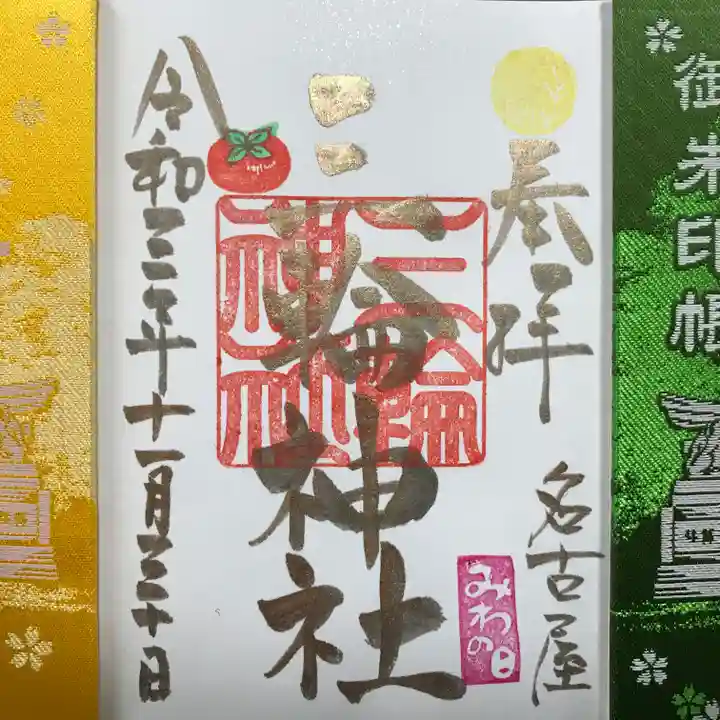 奉拝
名古屋
みわの日
三輪神社
三輪神社
令和三年十一月三十日
御朱印帳